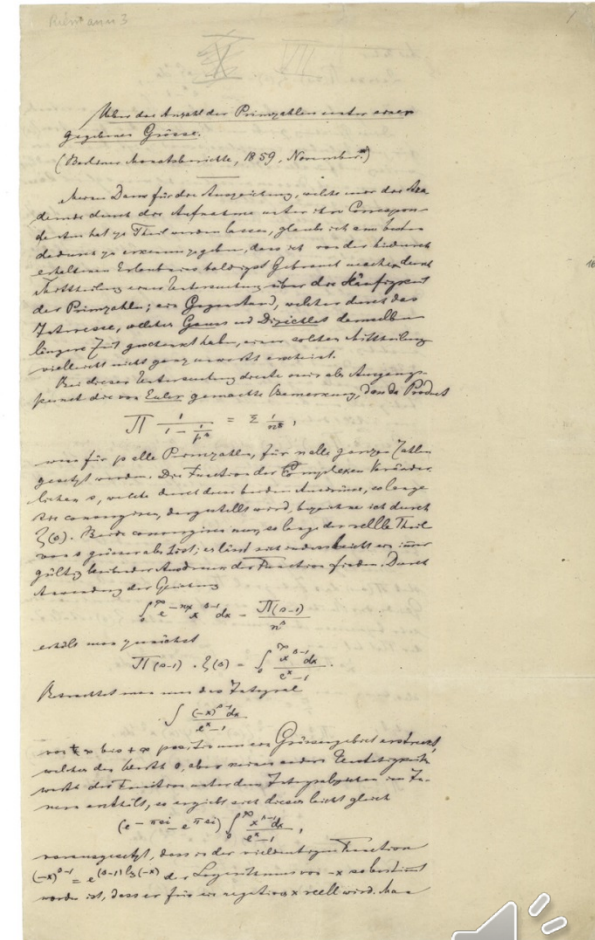 Riemann 3
Ueber die Anzahl der Primzahlen unter einer
gegebenen Grösse.
(Berliner Monatsberichte, 1859, November.)
Meinen Dank für die Auszeichnung, welche mir die Aka-
demie durch die Aufnahme unter ihre Correspon-
denten hat zu Theil werden lassen, glaube ich am besten
dadurch zu erkennen zu geben, dass ich von der hiedurch
erhaltenen Erlaubniss baldigst Gebrauch mache durch
Mittheilung einer Untersuchung über die Häufigkeit
der Primzahlen; ein Gegenstand, welcher durch das
Interesse, welches Gauss und Dirichlet demselben
längere Zeit geschenkt haben, einer solchen Mittheilung
vielleicht nicht ganz unwerth erscheint.
Bei dieser Untersuchung diente mir als Ausgangs-
punkt die von Euler gemachte Bemerkung, dass das Product
∏ 1/(1 − 1/p^s) = Σ 1/n^s,
wenn für p alle Primzahlen, für n alle ganzen Zahlen
gesetzt werden. Die Function der complexen Veränder-
lichen s, welche durch diese beiden Ausdrücke, so lange
sie convergiren, dargestellt wird, bezeichne ich durch
ζ(s). Beide convergiren nur, so lange der reelle Theil
von s grösser als 1 ist; es lässt sich indess leicht ein immer
gültig bleibender Ausdruck der Function finden. Durch
Anwendung der Gleichung
∫₀^∞ e^{−nx} x^{s−1} dx = Π(s−1)/n^s
erhält man zunächst
Π(s−1) · ζ(s) = ∫₀^∞ x^{s−1}dx/(e^x−1).
Betrachtet man nun das Integral
∫ (−x)^{s−1}dx/(e^x−1)
von +∞ bis +∞ positiv um ein Grössengebiet erstreckt,
welches den Werth 0, aber keinen andern Unstetigkeits-
werth der Function unter dem Integralzeichen im In-
nern enthält, so ergiebt sich dieses leicht gleich
(e^{−πsi} − e^{πsi}) ∫₀^∞ x^{s−1}dx/(e^x−1),
vorausgesetzt, dass in der vieldeutigen Function
(−x)^{s−1} = e^{(s−1)lg(−x)} der Logarithmus von −x so bestimmt
worden ist, dass er für ein negatives x reell wird. Man